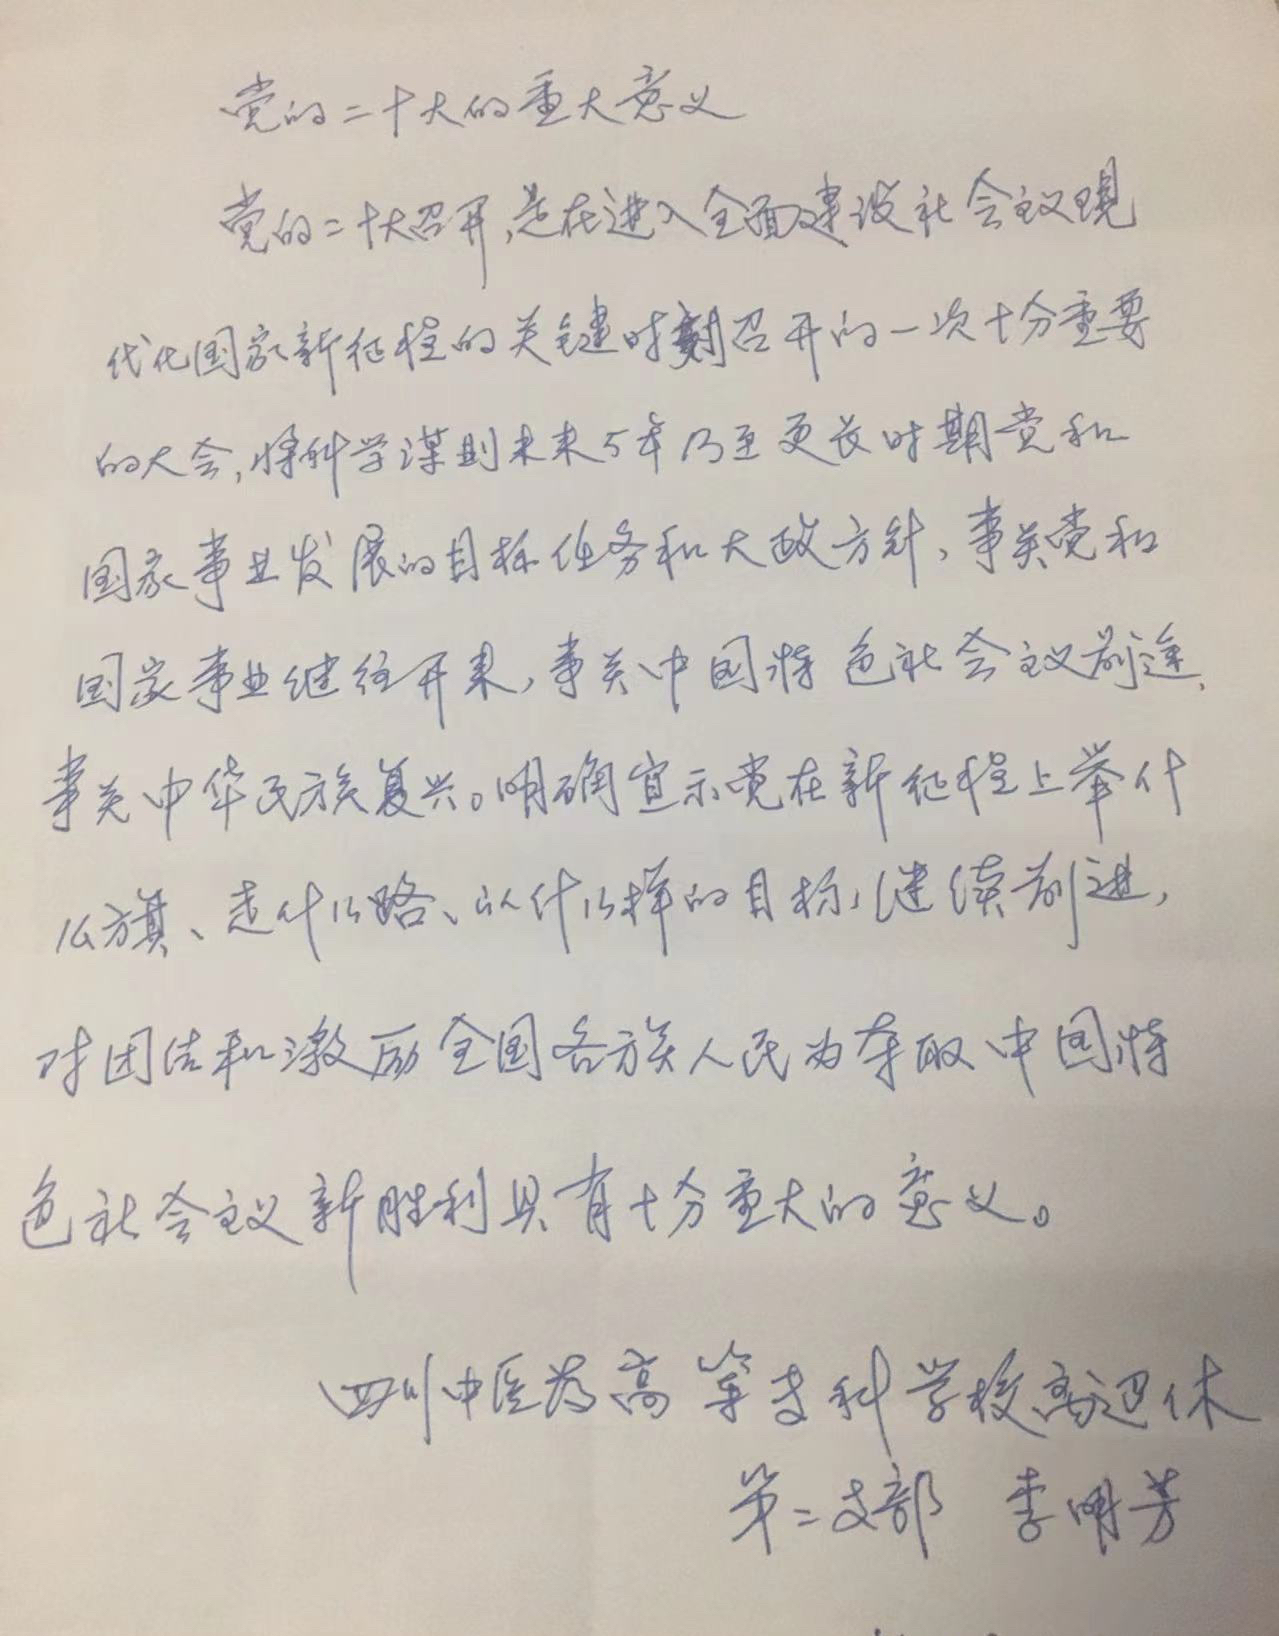 党的二十大的重大意义
党的二十大召开,是在进入全面建设社会主义现
代化国家新征程的关键时刻召开的一次十分重要
的大会,将科学谋划未来5年乃至更长时期党和
国家事业发展的目标任务和大政方针,事关党和
国家事业继往开来,事关中国特色社会主义前途,
事关中华民族复兴。明确宣示党在新征程上举什
么旗、走什么路、以什么样的目标,继续前进,
对团结和激励全国各族人民为夺取中国特
色社会主义新胜利具有十分重大的意义。
四川中医药高等专科学校离退休
第二支部 李明芳